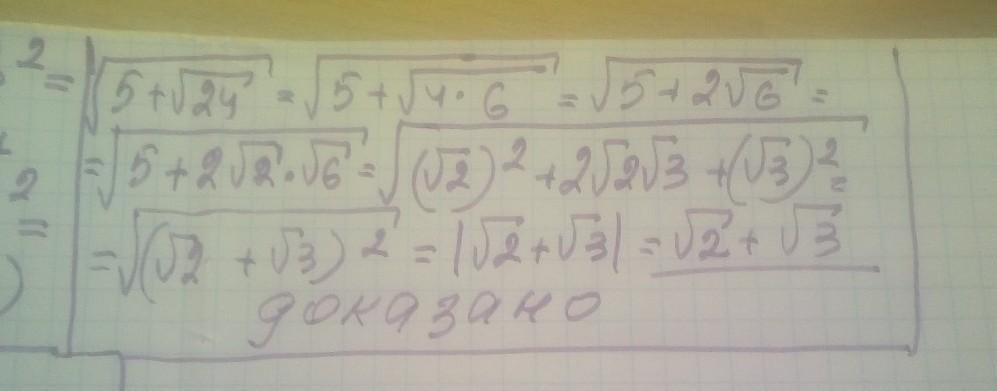 2 = √(5+√24) = √(5+√(4·6)) = √(5+2√6) =
= √(5+2√2·√6) = √((√2)²+2√2√3+(√3)²) =
2 = = √((√2+√3)²) = |√2+√3| = √2+√3
) доказано